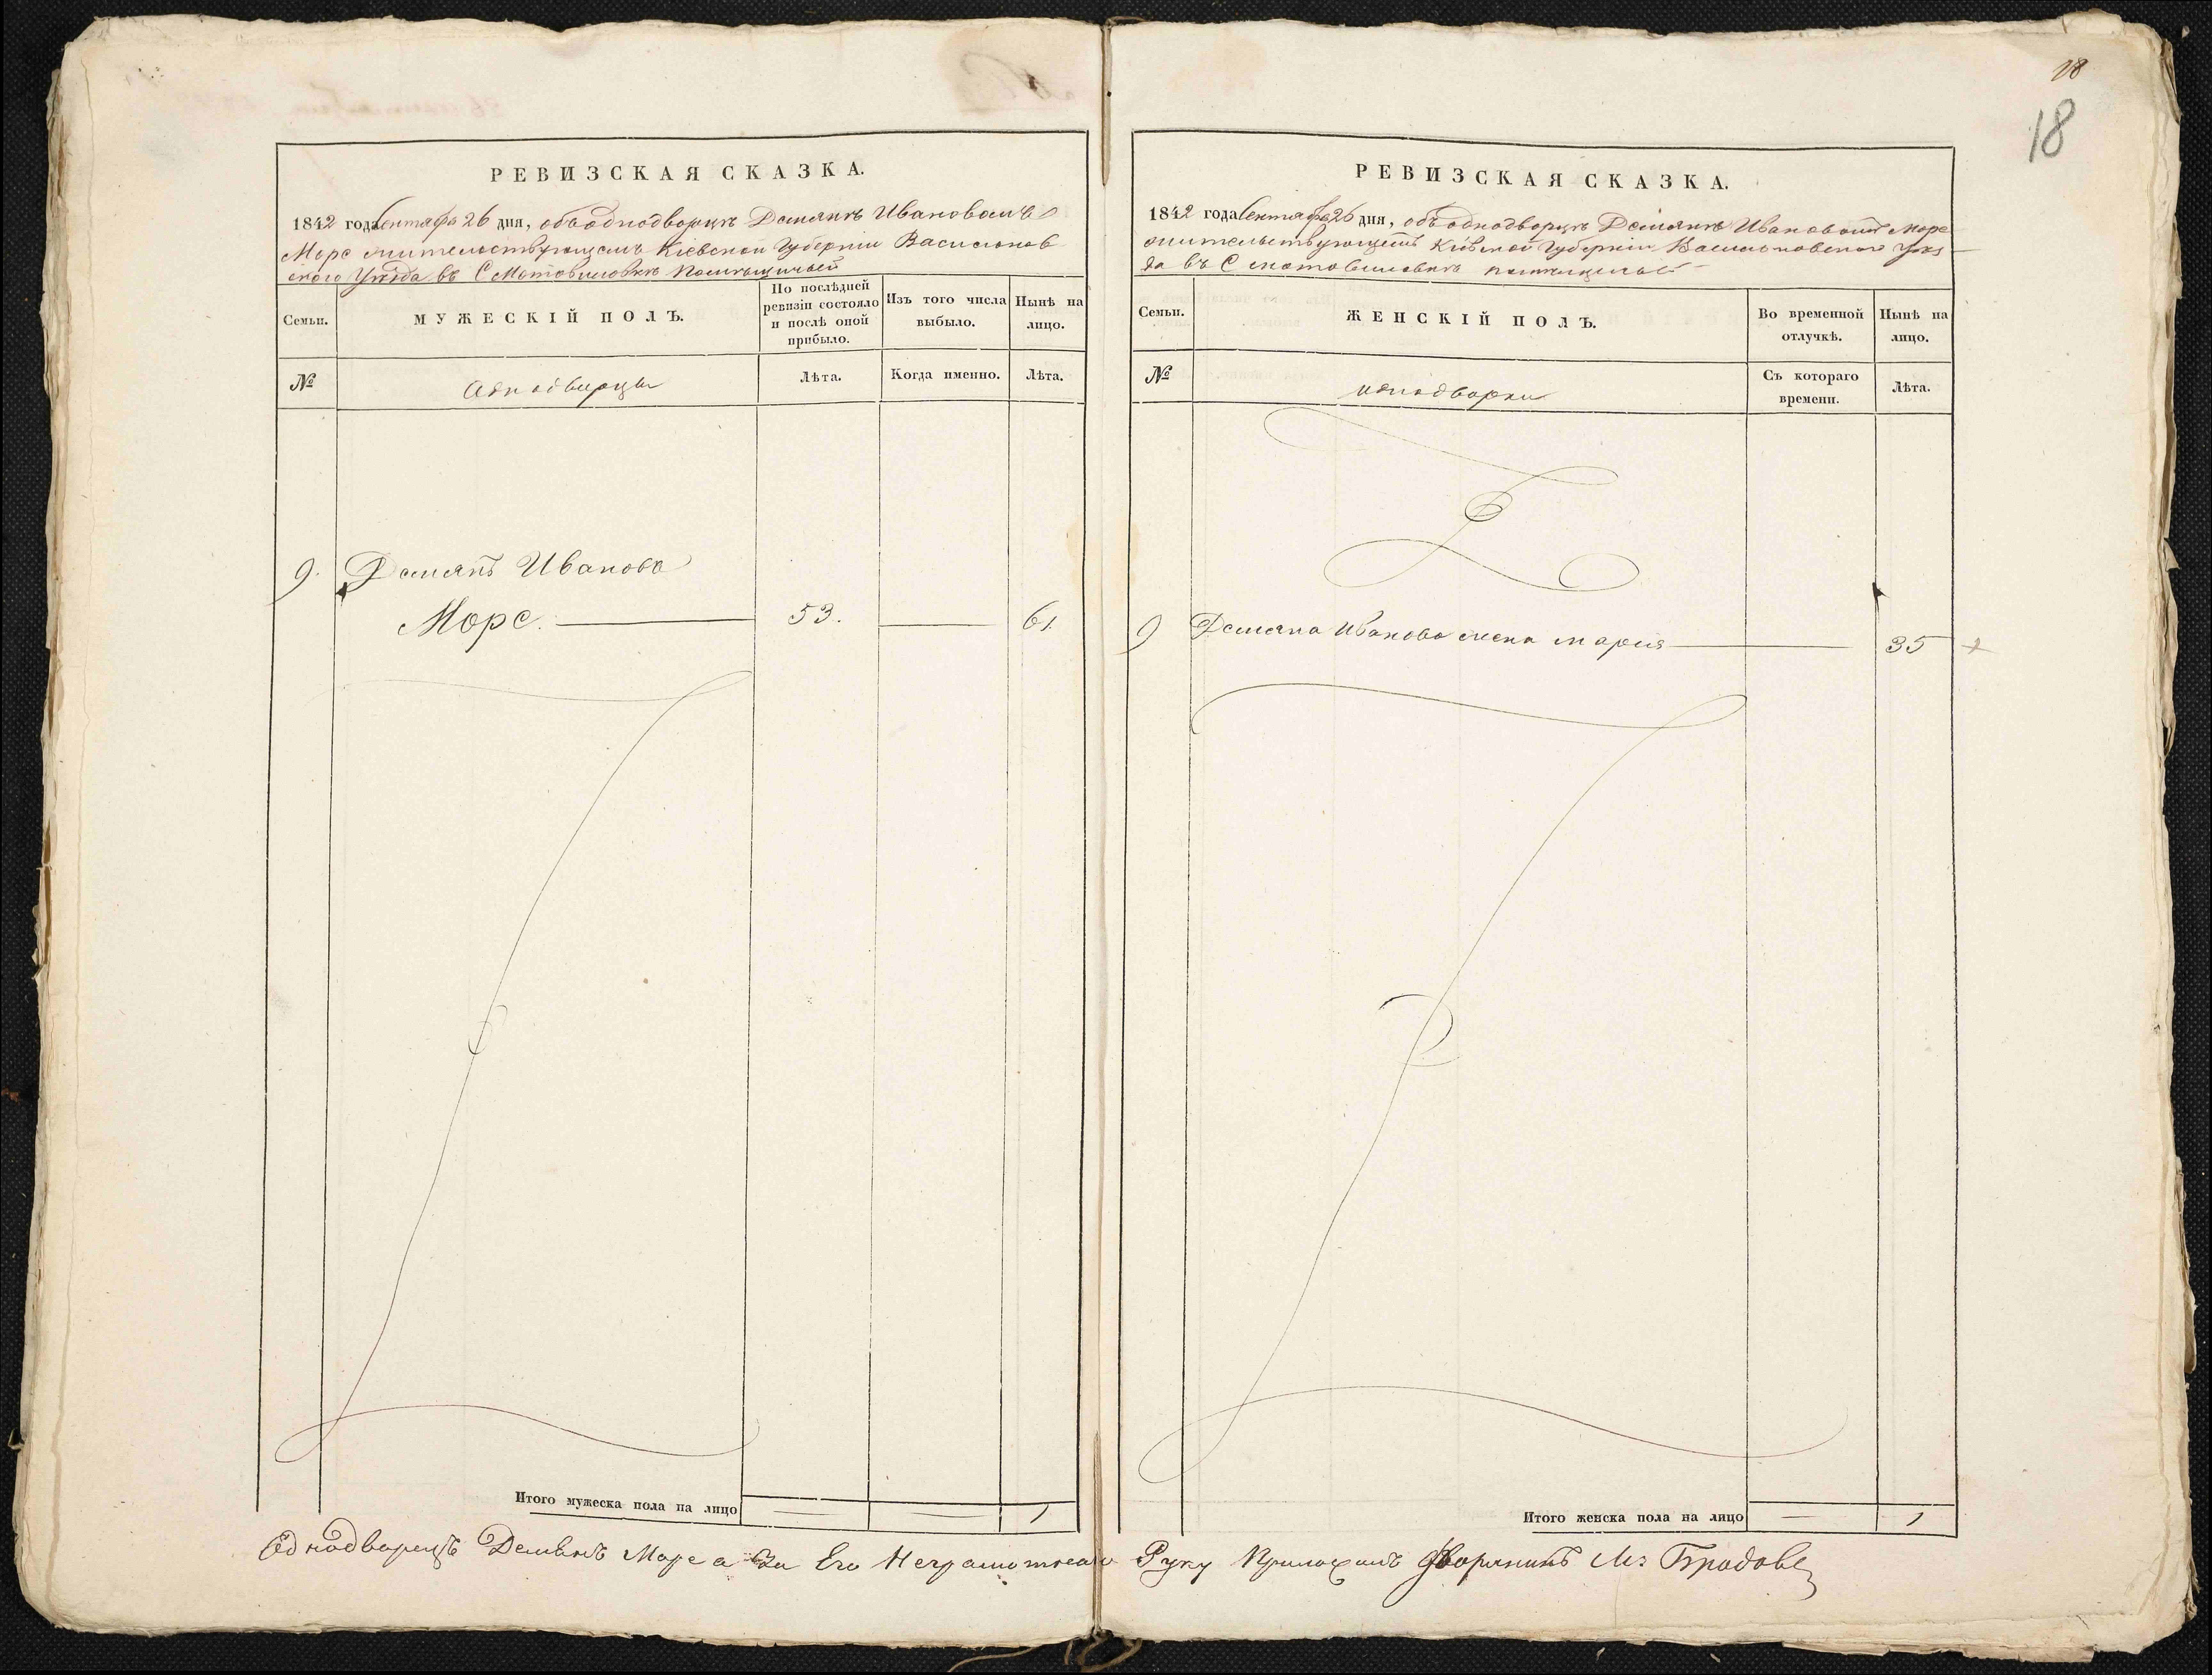 18
18
РЕВИЗСКАЯ СКАЗКА.
1842 года Сентября 26 дня, объ однодворцѣ Демянѣ Ивановомъ
Морс жительствующемъ Кіевской Губерніи Васильков
ского Уѣзда въ С Мотовиловкѣ Помѣщичьей
Семьи.
МУЖЕСКІЙ ПОЛЪ.
По послѣдней ревизіи состояло и послѣ оной прибыло.
Изъ того числа выбыло.
Нынѣ на лицо.
№
Однодворцы
Лѣта.
Когда именно.
Лѣта.
9. Демянъ Ивановъ
Морс. 53. 61.
Итого мужеска пола на лицо 1
РЕВИЗСКАЯ СКАЗКА.
1842 года Сентября 26 дня, объ однодворцѣ Демянѣ Ивановомъ Морс
жительствующемъ Кіевской Губерніи Васильковского Уѣз
да въ С мотовиловкѣ помѣщичьей
Семьи.
ЖЕНСКІЙ ПОЛЪ.
Во временной отлучкѣ.
Нынѣ на лицо.
№
однодворки
Съ котораго времени.
Лѣта.
9 Демяна Иванова жена мария 35
Итого женска пола на лицо 1
Однодворецъ Демьянъ Морс а За Его Неграмотного Руку Приложилъ Дворянинъ